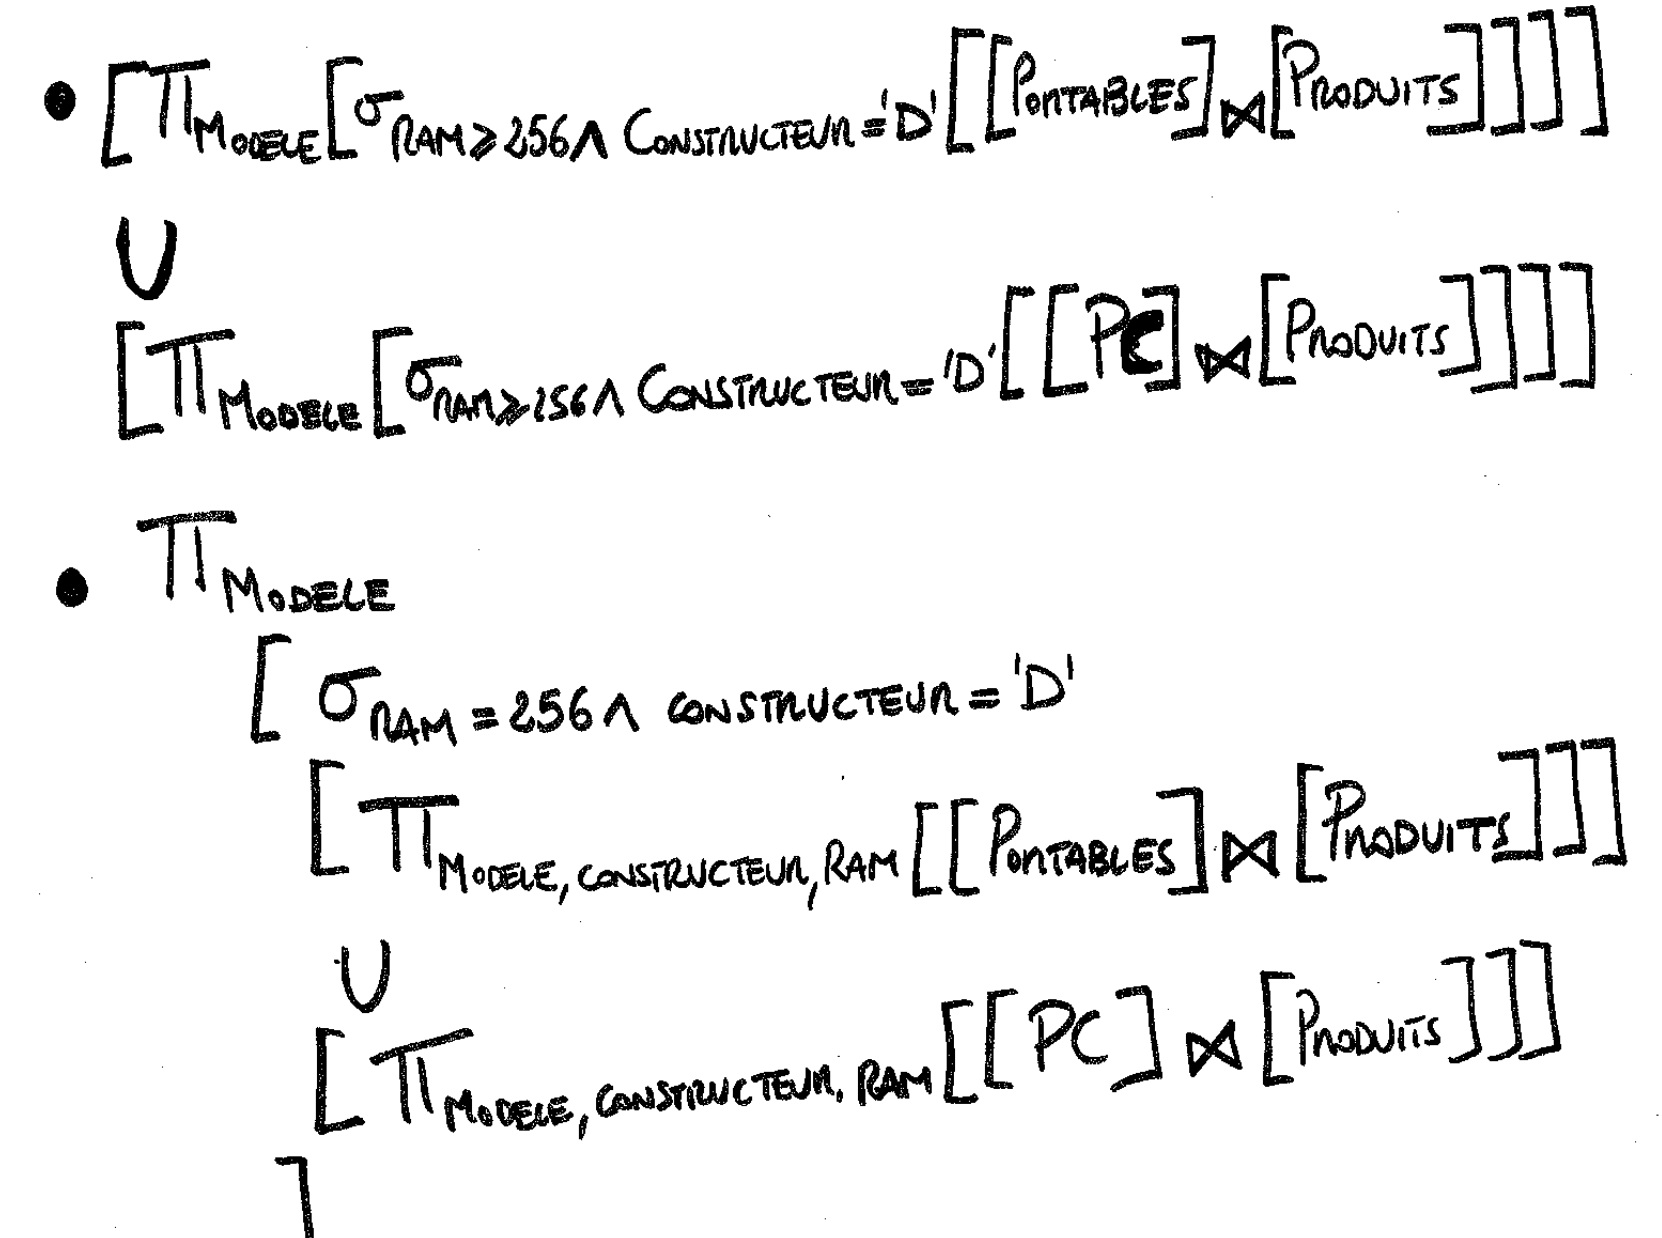 • [π MODELE [σ RAM ⩾ 256 ∧ CONSTRUCTEUR = 'D' [[PORTABLES] ⋈ [PRODUITS]]]]
∪
[π MODELE [σ RAM ⩾ 256 ∧ CONSTRUCTEUR = 'D' [[PC] ⋈ [PRODUITS]]]]
• π MODELE
[ σ RAM = 256 ∧ CONSTRUCTEUR = 'D'
[ π MODELE, CONSTRUCTEUR, RAM [[PORTABLES] ⋈ [PRODUITS]]]
∪
[ π MODELE, CONSTRUCTEUR, RAM [[PC] ⋈ [PRODUITS]]]
]